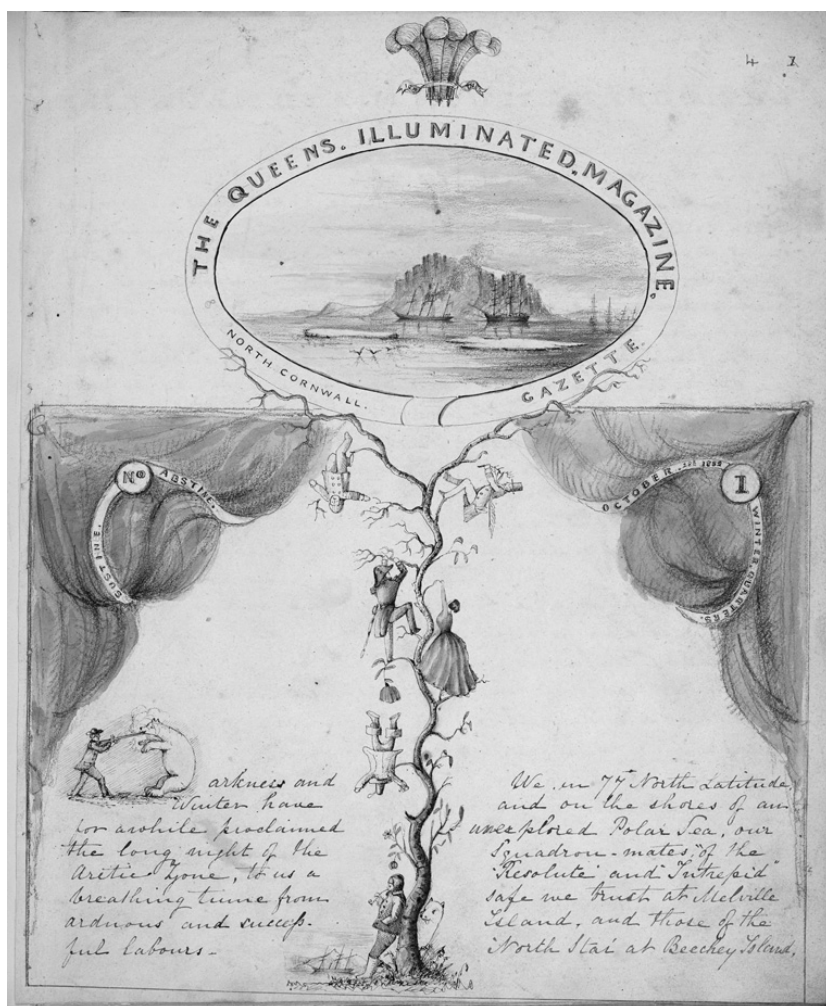 4 1
THE QUEENS. ILLUMINATED. MAGAZINE.
NORTH CORNWALL. GAZETTE.
SUSTINE. Nº ABSTINE.
OCTOBER. 1852 1 WINTER. QUARTERS.
arkness and
Winter have
for awhile proclaimed
the long night of the
Arctic Zone, to us a
breathing time from
arduous and success-
ful labours-
We in 77° North Latitude,
and on the shores of an
unexplored Polar Sea, our
Squadron-mates, of the
"Resolute and Intrepid"
safe we trust at Melville
Island, and those of the
'North Star' at Beechey Island,